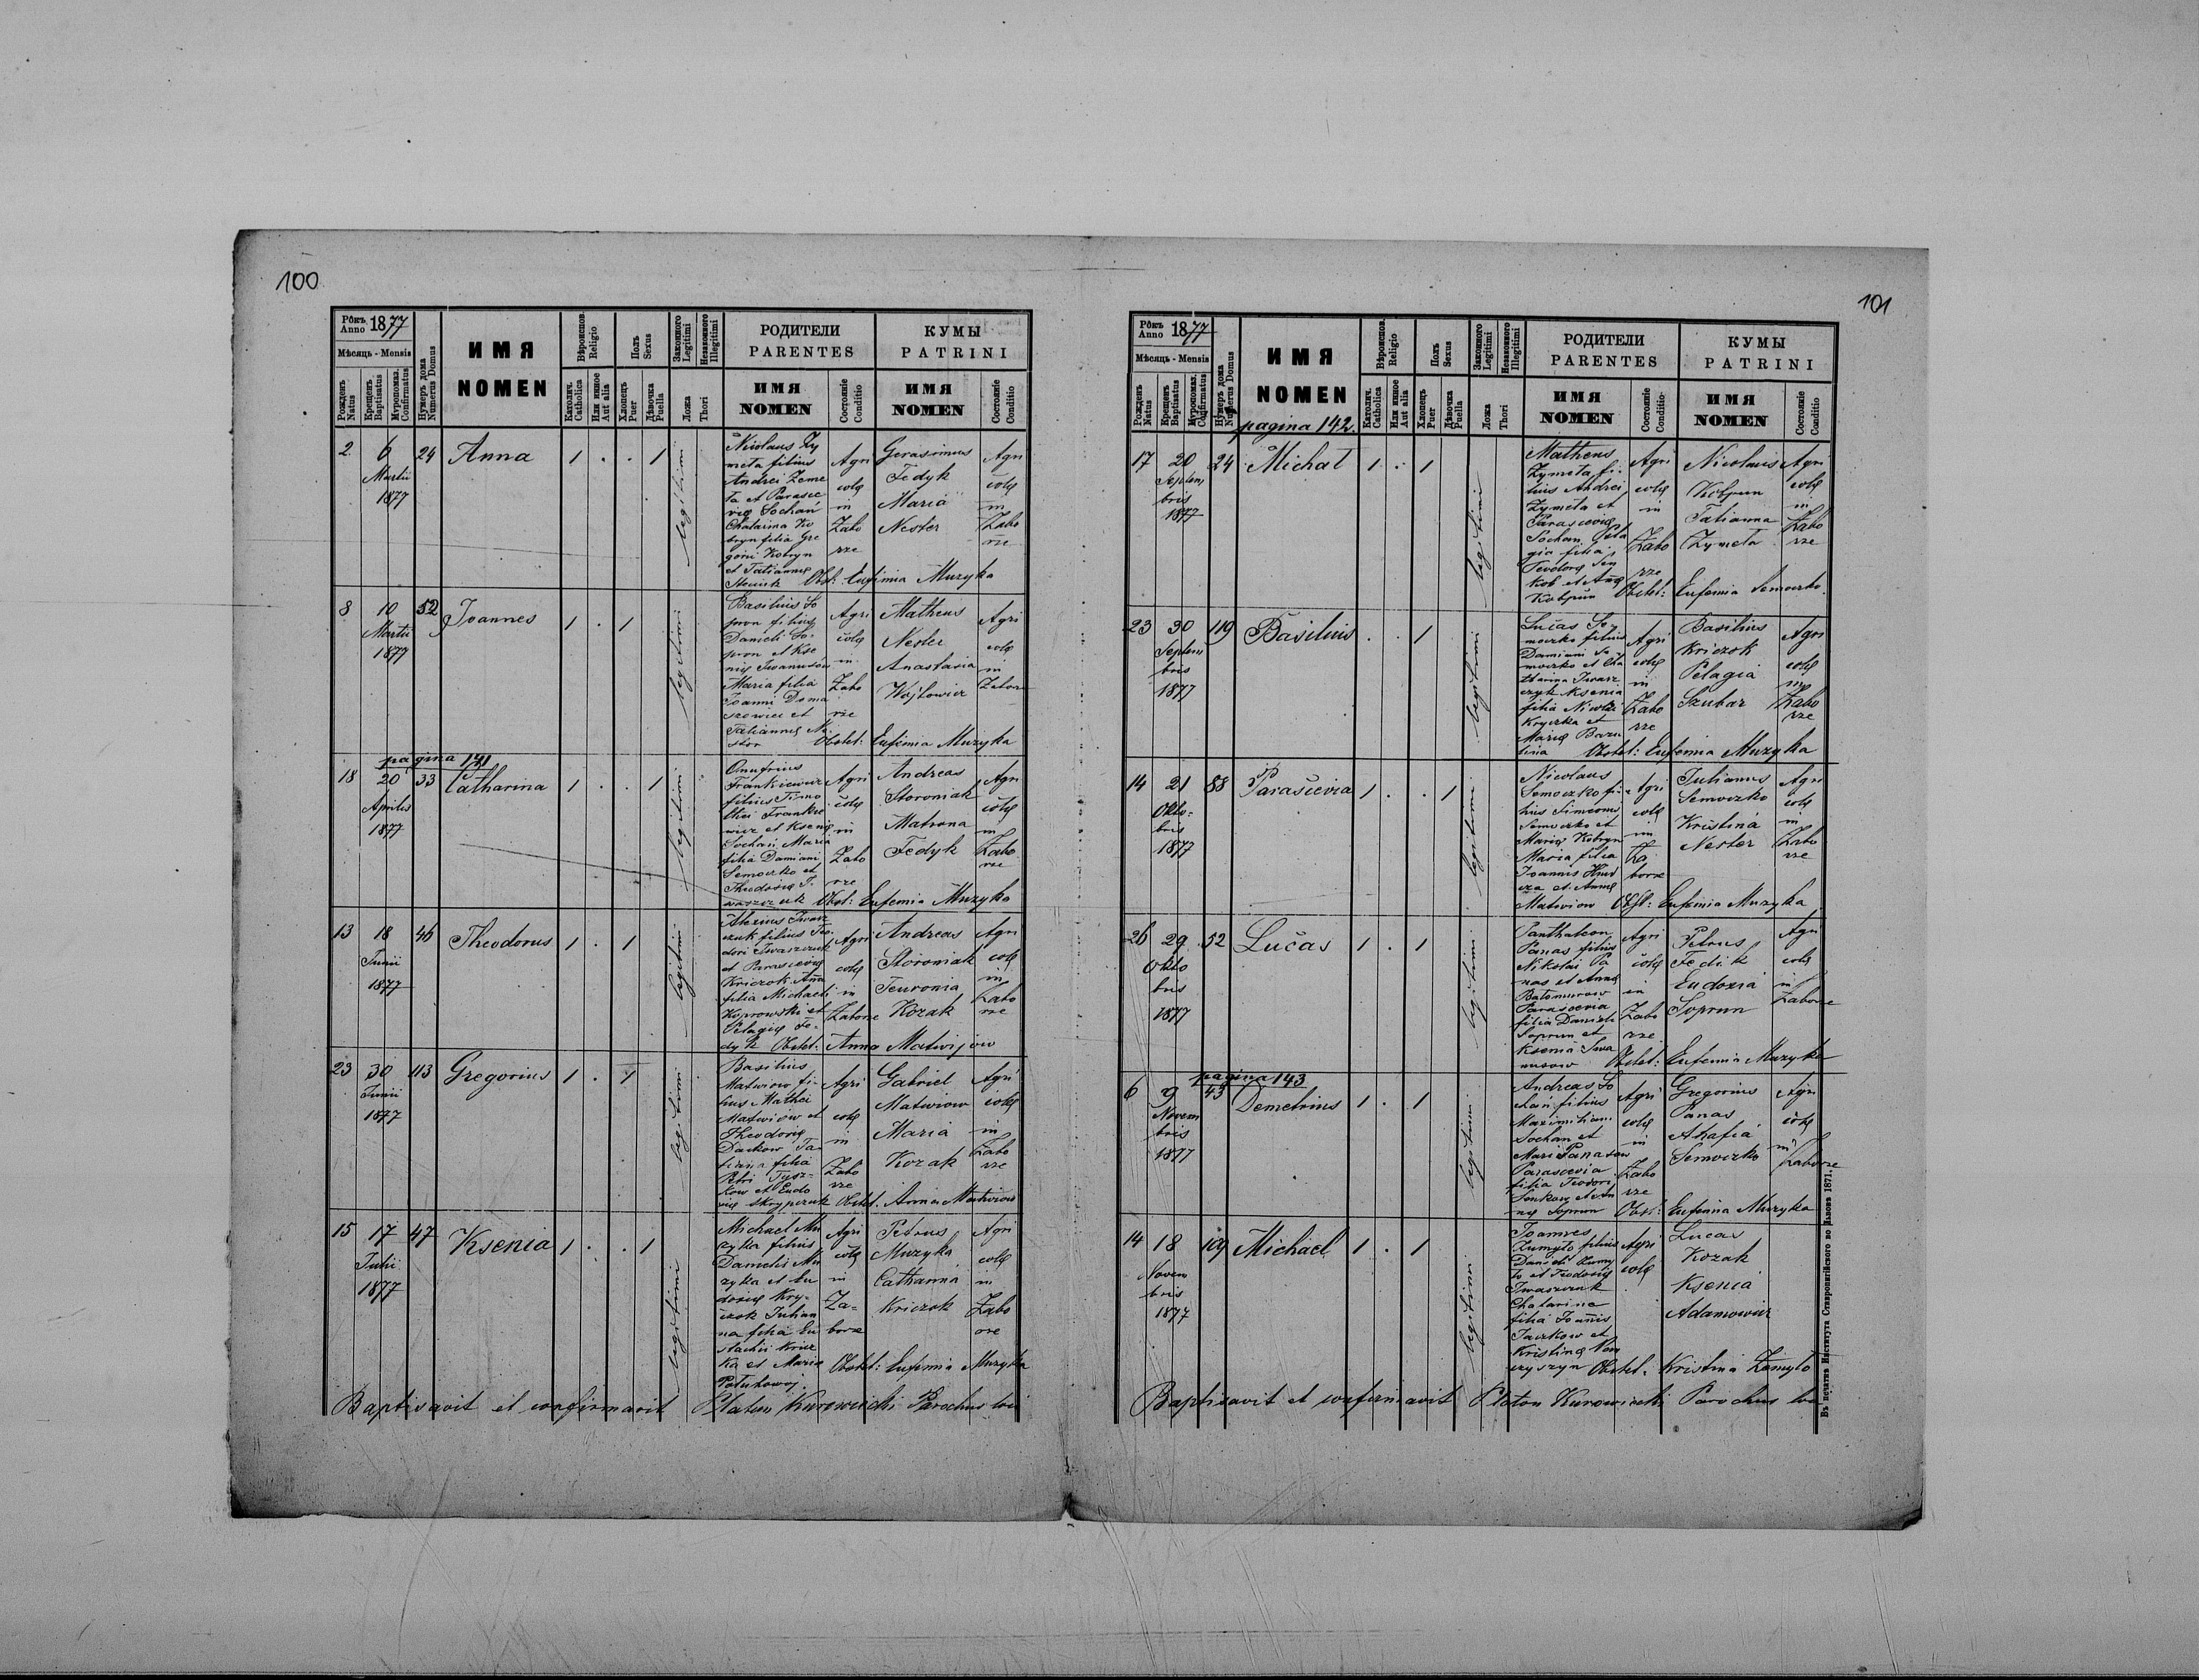 100
Рôкъ Anno 1877
Мѣсяць - Mensis
Рожденъ Natus
Крещенъ Baptisatus
Муропомаз. Confirmatus
Нумеръ дома Numerus Domus
ИМЯ NOMEN
Вѣроиспов. Religio
Католич. Catholica
Или инное Aut alia
Полъ Sexus
Хлопець Puer
Дѣвочка Puella
Законного Legitimi
Незаконного Illegitimi
Ложа Thori
РОДИТЕЛИ PARENTES
ИМЯ NOMEN
Состоянiе Conditio
КУМЫ PATRINI
ИМЯ NOMEN
Состоянiе Conditio
2 6 Martii 1877 24 Anna 1 . . 1 legitimi
Nicolaus Zy
meta filius
Andrei Zeme
ta et Parasce
vię Sochań
Chatarina Ko
bryn filia Gre
gorii Kobryn
et Tatiannę
Agri colę in Zabo rze
Gerasimus Fedyk
Maria Nester
Agri colę in Zabo rze
Obst: Eufimia Muzyka
8 10 Martii 1877 52 Joannes 1 . 1 legitimi
Basilius So
pron filius
Danieli So-
pron et Kse
nię Iwanusów
Maria filia
Joanni Doma
szewicz et
Tatiannę Ne
stor
Agri colę in Zabo rze
Matheus Nester
Anastasia Wojtowicz
Agri colę in Zaborze
Obstet: Eufemia Muzyka
pagina 141
18 20 Aprilis 1877 33 Catharina 1 . . 1 legitimi
Onufrius
Frankiewicz
filius Timo
thei Frankie
wicz et Ksenię
Sochań Maria
filia Damiani
Semoczko et
Theodosię I-
waszczuk
Agri colę in Zabo rze
Andreas Storoniak
Matrona Fedyk
Agri colę in Zabo rze
Obst: Eufemia Muzyka
13 18 Junii 1877 46 Theodorus 1 . 1 legitimi
Alexius Iwasz
czuk filius Teo
dori Iwaszczuk
et Parascevię
Kriczok Anna
filia Michaeli
Koprowski et
Pelagię Fe-
dyk
Agri colę in Zaborze
Andreas Storoniak
Teuronia Kozak
Agri colę in Zabo rze
Obstet: Anna Matwijow
23 30 Junii 1877 113 Gregorius 1 . 1 legitimi
Basilius
Matwiow fi-
lius Mathei
Matwiow et
Theodorię
Dackow Ta-
tianna filia
Petri Tysz-
kow et Eudo
xię Skrypczuk
Agri colę in Zabo rze
Gabriel Matwiow
Maria Kozak
Agri colę in Zabo rze
Obstet. Anna Matwiow
15 17 Julii 1877 47 Ksenia 1 . . 1 legitimi
Michael Mu
zyka filius
Danielis Mu
zyka et Eu
dosię Kry-
czok Julian
na filia Eu
stachii Kricz
ka et Maria
Agri colę in Za- borze
Petrus Muzyka
Catharina Kriczok
Agri colę in Zabo rze
Obstet: Eufemia Muzyka
Baptisavit et confirmavit Platon Kurowicki Parochus loci
101
Рôкъ Anno 1877
Мѣсяць - Mensis
Рожденъ Natus
Крещенъ Baptisatus
Муропомаз. Confirmatus
Нумеръ дома Numerus Domus
ИМЯ NOMEN
Вѣроиспов. Religio
Католич. Catholica
Или инное Aut alia
Полъ Sexus
Хлопець Puer
Дѣвочка Puella
Законного Legitimi
Незаконного Illegitimi
Ложа Thori
РОДИТЕЛИ PARENTES
ИМЯ NOMEN
Состоянiе Conditio
КУМЫ PATRINI
ИМЯ NOMEN
Состоянiе Conditio
pagina 142.
17 20 Septem bris 1877 24 Michał 1 . 1 legitimi
Matheus
Zymeta fi-
lius Andrei
Zymeta et
Parascevię
Sochan, Pela
gia filia
Teodorę Sen
kob et Annę
Kobpun
Agri colę in Zabo rze
Nicolaus Kobpun
Tatianna Zymeta
Agri colę in Zabo rze
Obstet: Eufemia Semoczko.
23 30 Septem bris 1877 119 Basilius . . 1 legitimi
Lucas Se
moczko filius
Damiani Se
moczko et Cha
tharina Iwasz
czyk Ksenia
filia Nicolai
Kryczka et
Marię
Agri colę in Zabo rze
Basilius Kriczok
Pelagia Szubar
Agri colę in Zabo rze
Obstet: Eufemia Muzyka
14 21 Okto- bris 1877 88 Parascevia 1 . . 1 legitimi
Nicolaus
Semoczko fi-
lius Simeoni
Semoczko et
Marię Kobryn
Maria filia
Joannis
et Annę
Matwiow
Agri colę in Za borze
Julianus Semoczko
Kristina Nester
Agri colę in Zabo rze
Obst: Eufimia Muzyka
26 29 Okto bris 1877 52 Lucas 1 . 1 legitimi
Panthaleon
Panas filius
Nikolai Pa
nas et Annę
Parascevia
filia Danieli
Soprun et
Ksenia Iwa
nusow
Agri colę in Zabo rze
Petrus Fedik
Eudoxia Soprun
Agri colę in Zaborze
Obstet: Eufemia Muzyka
pagina 143
6 9 Novem bris 1877 43 Demetrius 1 . 1 legitimi
Andreas So
chań filius
Maximiliani
Sochan et
Mari Panasów
Parascevia
filia Teodori
Senkow et An
nę Soprun
Agri colę in Zabo rze
Gregorius Panas
Ahafia Semoczko
Agri colę in Zaborze
Obst: Eufimia Muzyka
14 18 Novem bris 1877 109 Michael 1 . 1 legitimi
Joannes
Zumyło filius
Danieli Zumy
ło et Teodosię
Iwaszczuk
Chatarina
filia Joannis
Jaczkow et
Kristinę
Agri colę
Lucas Kozak
Ksenia Adamowicz
Obstet. Kristina Zumyło
Baptisavit et confirmavit Platon Kurowicki Parochus loci
Въ печатни Института Ставропигiйского во Львовѣ 1871.